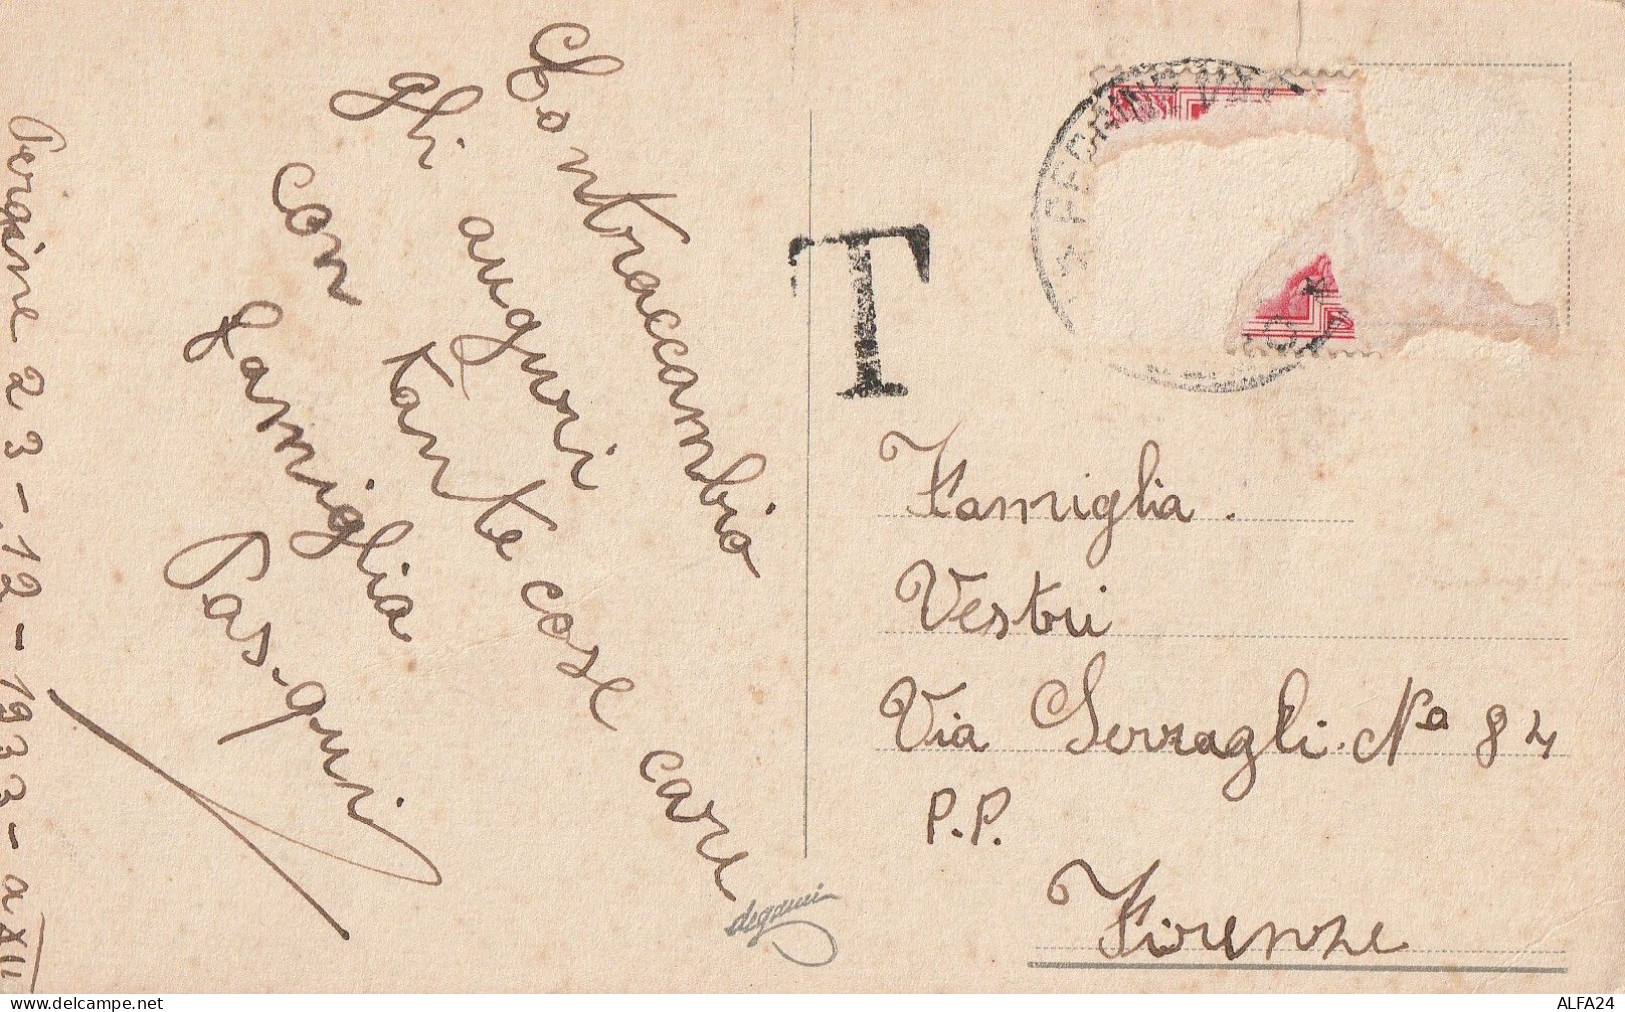 Contraccambio
gli auguri
con tante cose care
famiglia
Pas-qui
Pergine 23-12-1933-a XII
T
PERGINE VAL
Famiglia
Vestri
Via Serragli. Nº 84
P.P.
Firenze
degami
www.delcampe.net
ALFA24